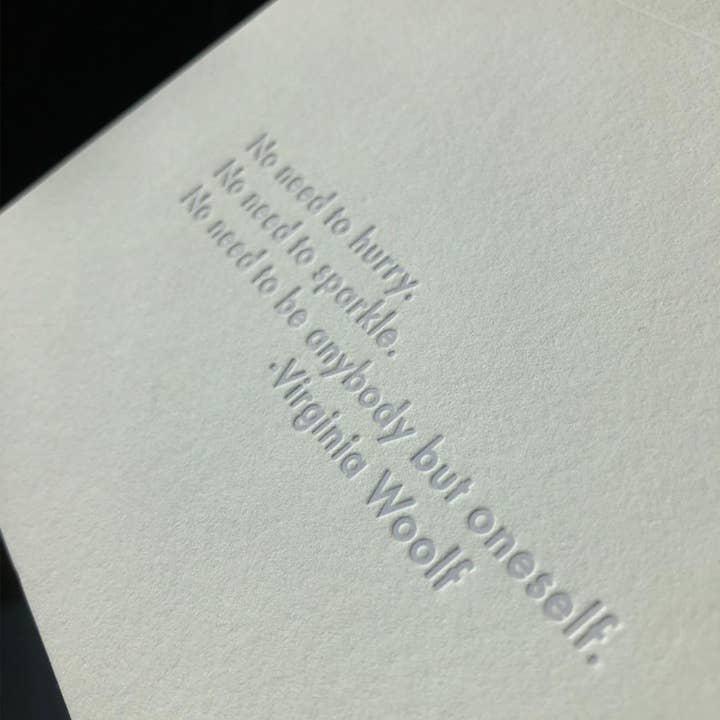 No need to hurry.
No need to sparkle.
No need to be anybody but oneself.
.Virginia Woolf